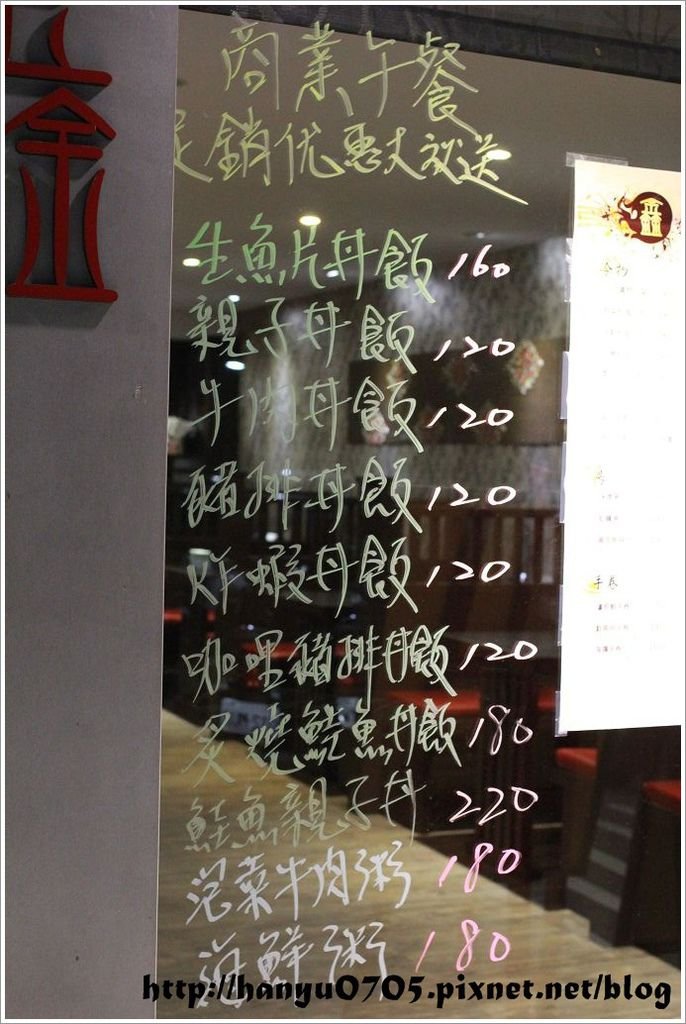 商業午餐
促銷优惠大放送
生魚片丼飯 160
親子丼飯 120
牛肉丼飯 120
豬排丼飯 120
炸蝦丼飯 120
咖哩豬排丼飯 120
炙燒鮭魚丼飯 180
鮭魚親子丼 220
泡菜牛肉粥 180
海鮮粥 180
手卷
http://hanyu0705.pixnet.net/blog